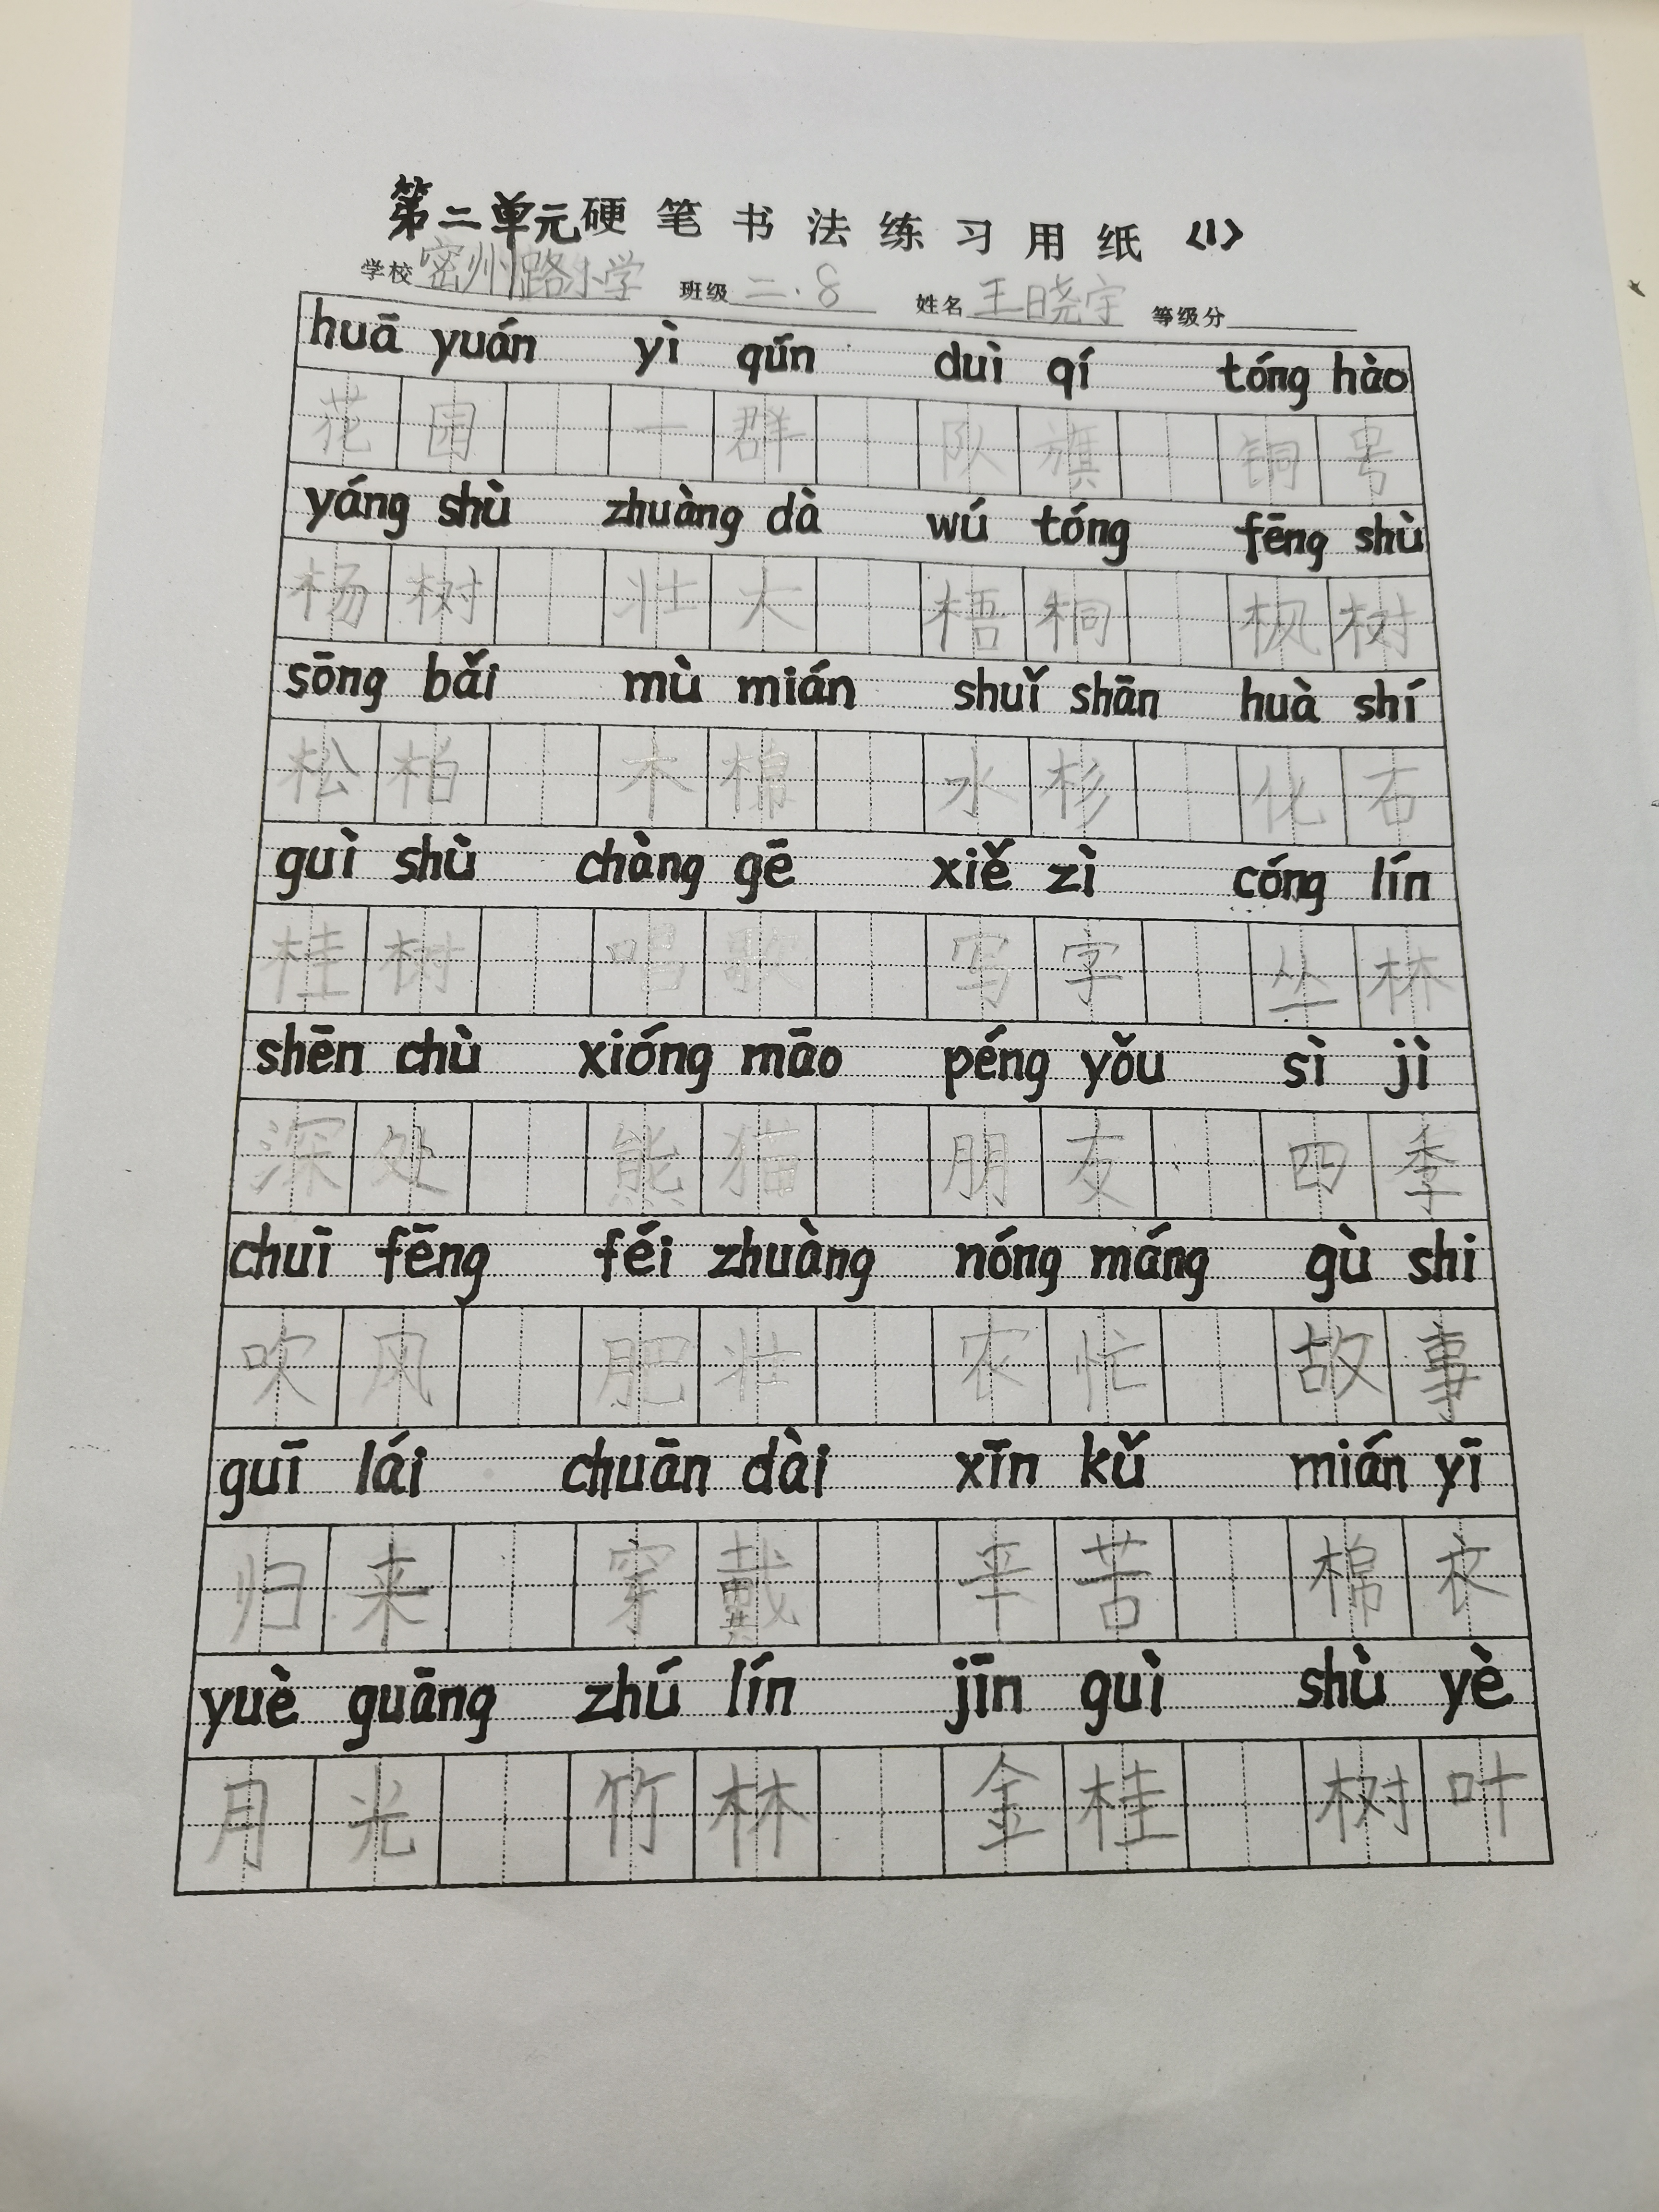 第二单元硬笔书法练习用纸 〈1〉
学校 密州路小学 班级 二.8 姓名 王晓宇 等级分
huā yuán yì qún duì qí tóng hào
花园 一群 队旗 铜号
yáng shù zhuàng dà wú tóng fēng shù
杨树 壮大 梧桐 枫树
sōng bǎi mù mián shuǐ shān huà shí
松柏 木棉 水杉 化石
guì shù chàng gē xiě zì cóng lín
桂树 唱歌 写字 丛林
shēn chù xióng māo péng yǒu sì jì
深处 熊猫 朋友 四季
chuī fēng féi zhuàng nóng máng gù shi
吹风 肥壮 农忙 故事
guī lái chuān dài xīn kǔ mián yī
归来 穿戴 辛苦 棉衣
yuè guāng zhú lín jīn guì shù yè
月光 竹林 金桂 树叶